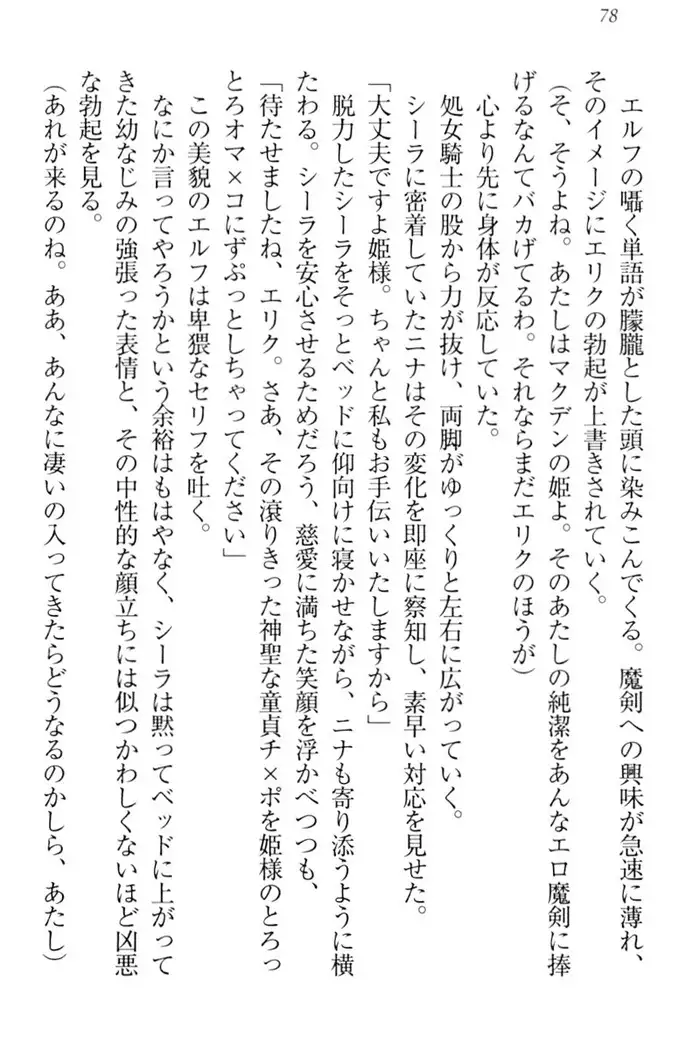 78
エルフの囁く単語が朦朧とした頭に染みこんでくる。魔剣への興味が急速に薄れ、
そのイメージにエリクの勃起が上書きされていく。
(そ、そうよね。あたしはマクデンの姫よ。そのあたしの純潔をあんなエロ魔剣に捧
げるなんてバカげてるわ。それならまだエリクのほうが)
心より先に身体が反応していた。
処女騎士の股から力が抜け、両脚がゆっくりと左右に広がっていく。
シーラに密着していたニナはその変化を即座に察知し、素早い対応を見せた。
「大丈夫ですよ姫様。ちゃんと私もお手伝いいたしますから」
脱力したシーラをそっとベッドに仰向けに寝かせながら、ニナも寄り添うように横
たわる。シーラを安心させるためだろう、慈愛に満ちた笑顔を浮かべつつも、
「待たせましたね、エリク。さあ、その滾りきった神聖な童貞チ×ポを姫様のとろっ
とろオマ×コにずぷっとしちゃってください」
この美貌のエルフは卑猥なセリフを吐く。
なにか言ってやろうかという余裕はもはやなく、シーラは黙ってベッドに上がって
きた幼なじみの強張った表情と、その中性的な顔立ちには似つかわしくないほど凶悪
な勃起を見る。
(あれが来るのね。ああ、あんなに凄いの入ってきたらどうなるのかしら、あたし)